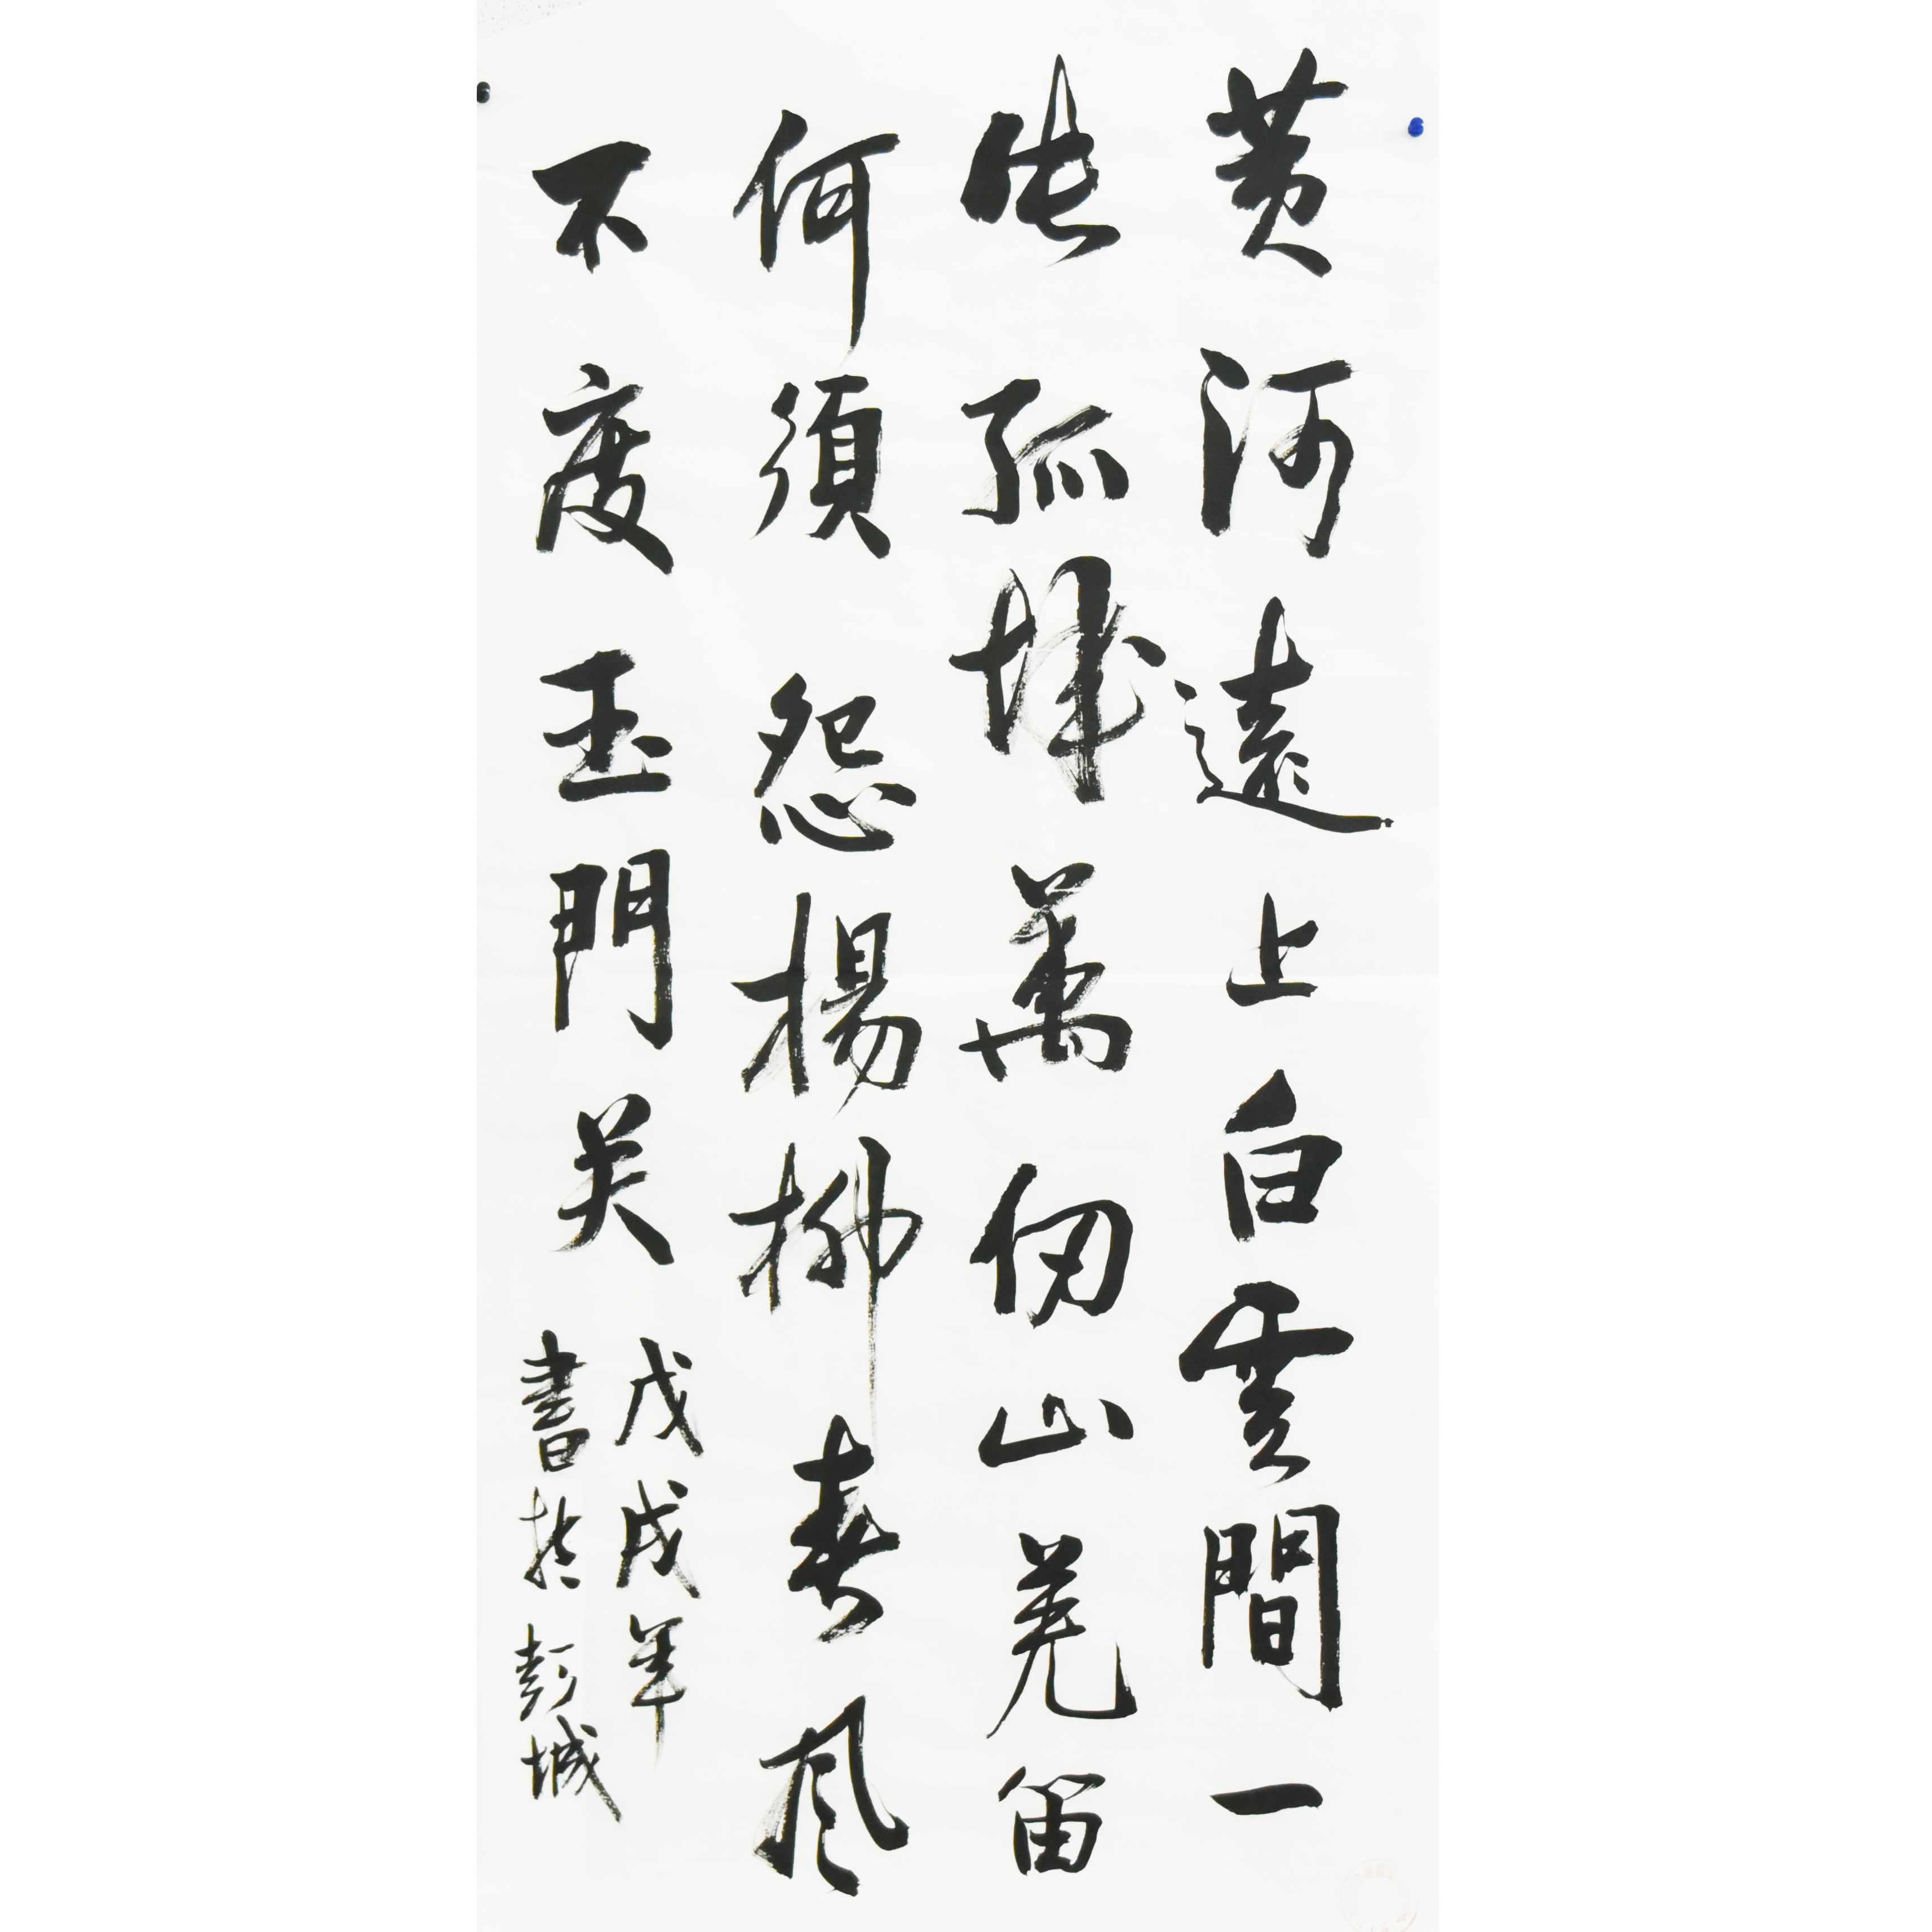 黄河遠上白雲間一
片孤城萬仞山羌笛
何須怨楊柳春風
不度玉門关
戊戌年
書於彭城